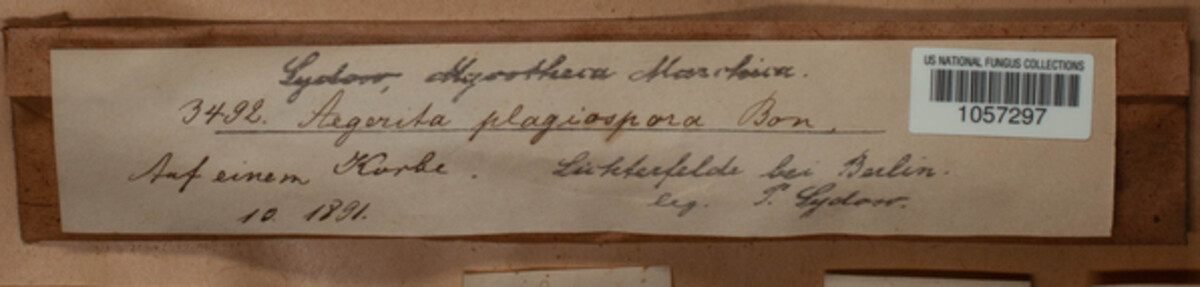 Sydow, Mycotheca Marchica.
3492. Aegerita plagiospora Bon.
Auf einem Korbe. Lichterfelde bei Berlin.
10. 1891. leg. P. Sydow.
US NATIONAL FUNGUS COLLECTIONS
1057297